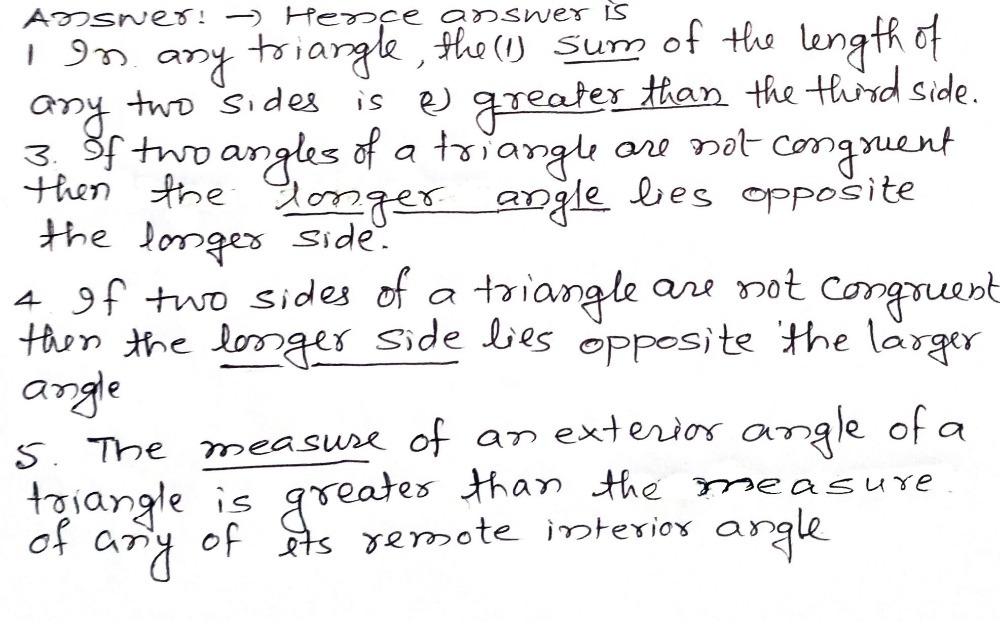 Answer: → Hence answer is
1 In any triangle, the (1) sum of the length of
any two sides is 2) greater than the third side.
3. If two angles of a triangle are not congruent
then the longer angle lies opposite
the longer side.
4 If two sides of a triangle are not congruent
then the longer side lies opposite the larger
angle
5. The measure of an exterior angle of a
triangle is greater than the measure
of any of its remote interior angle